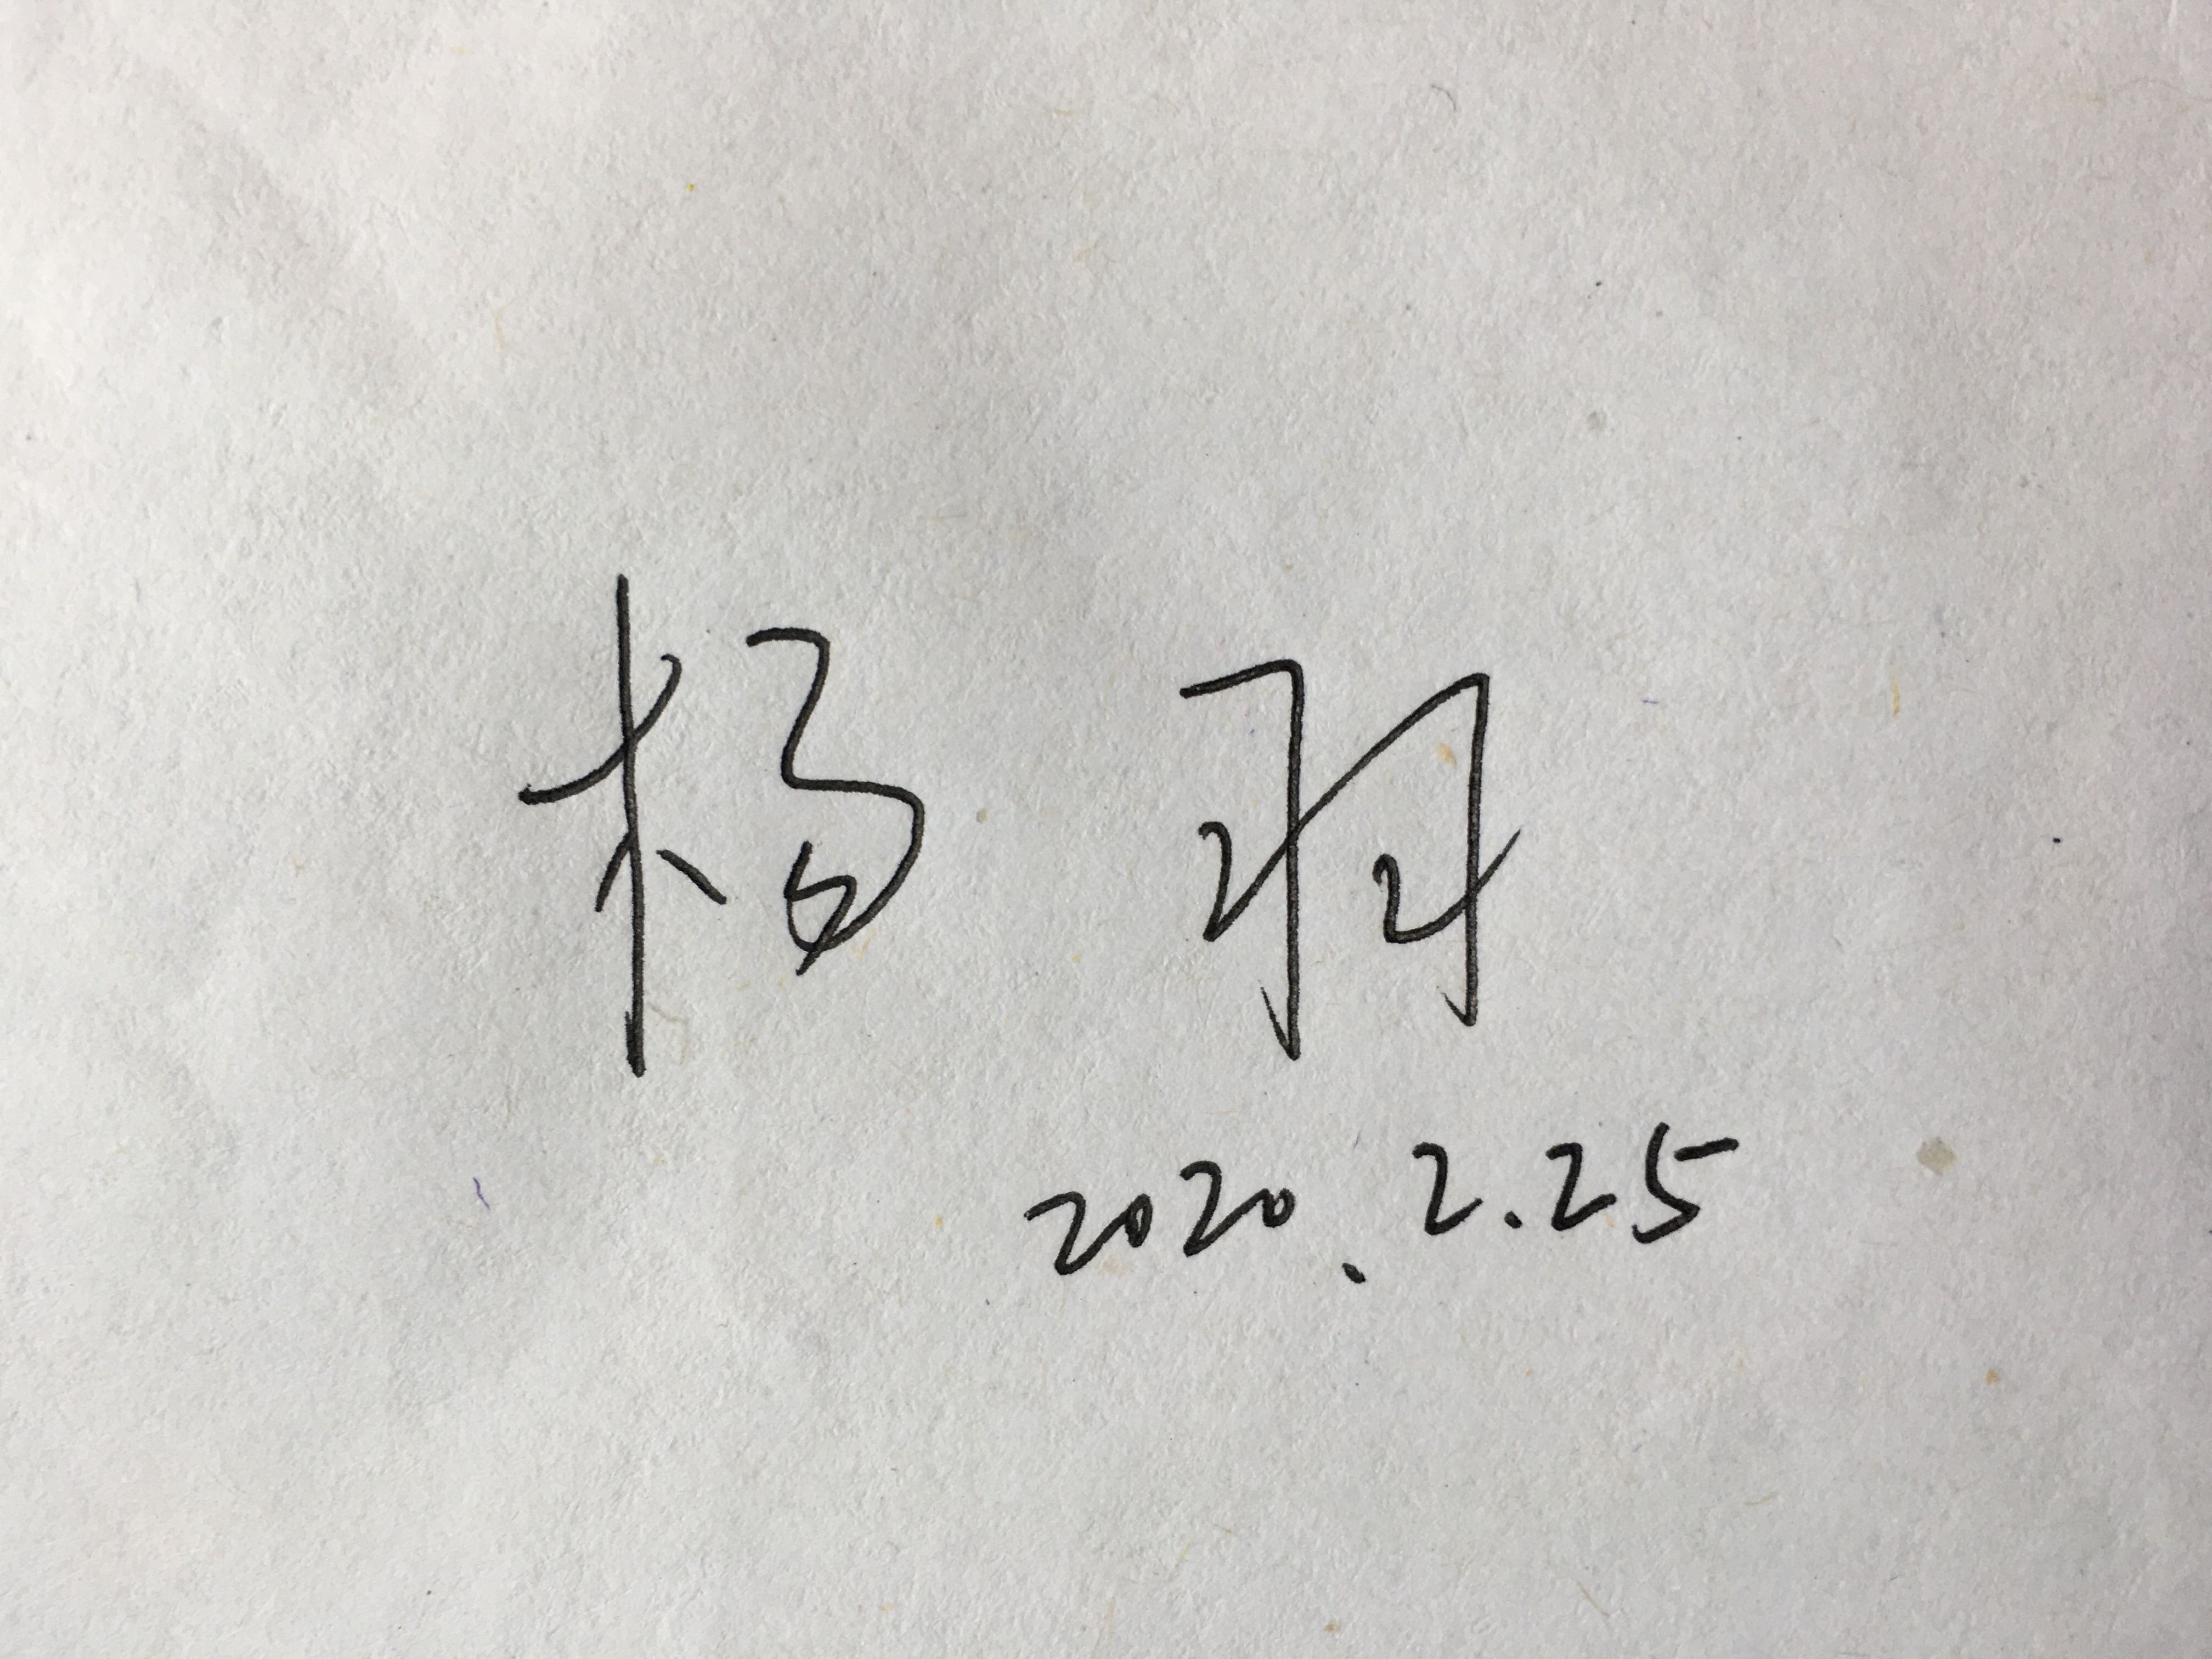 杨羽
2020.2.25